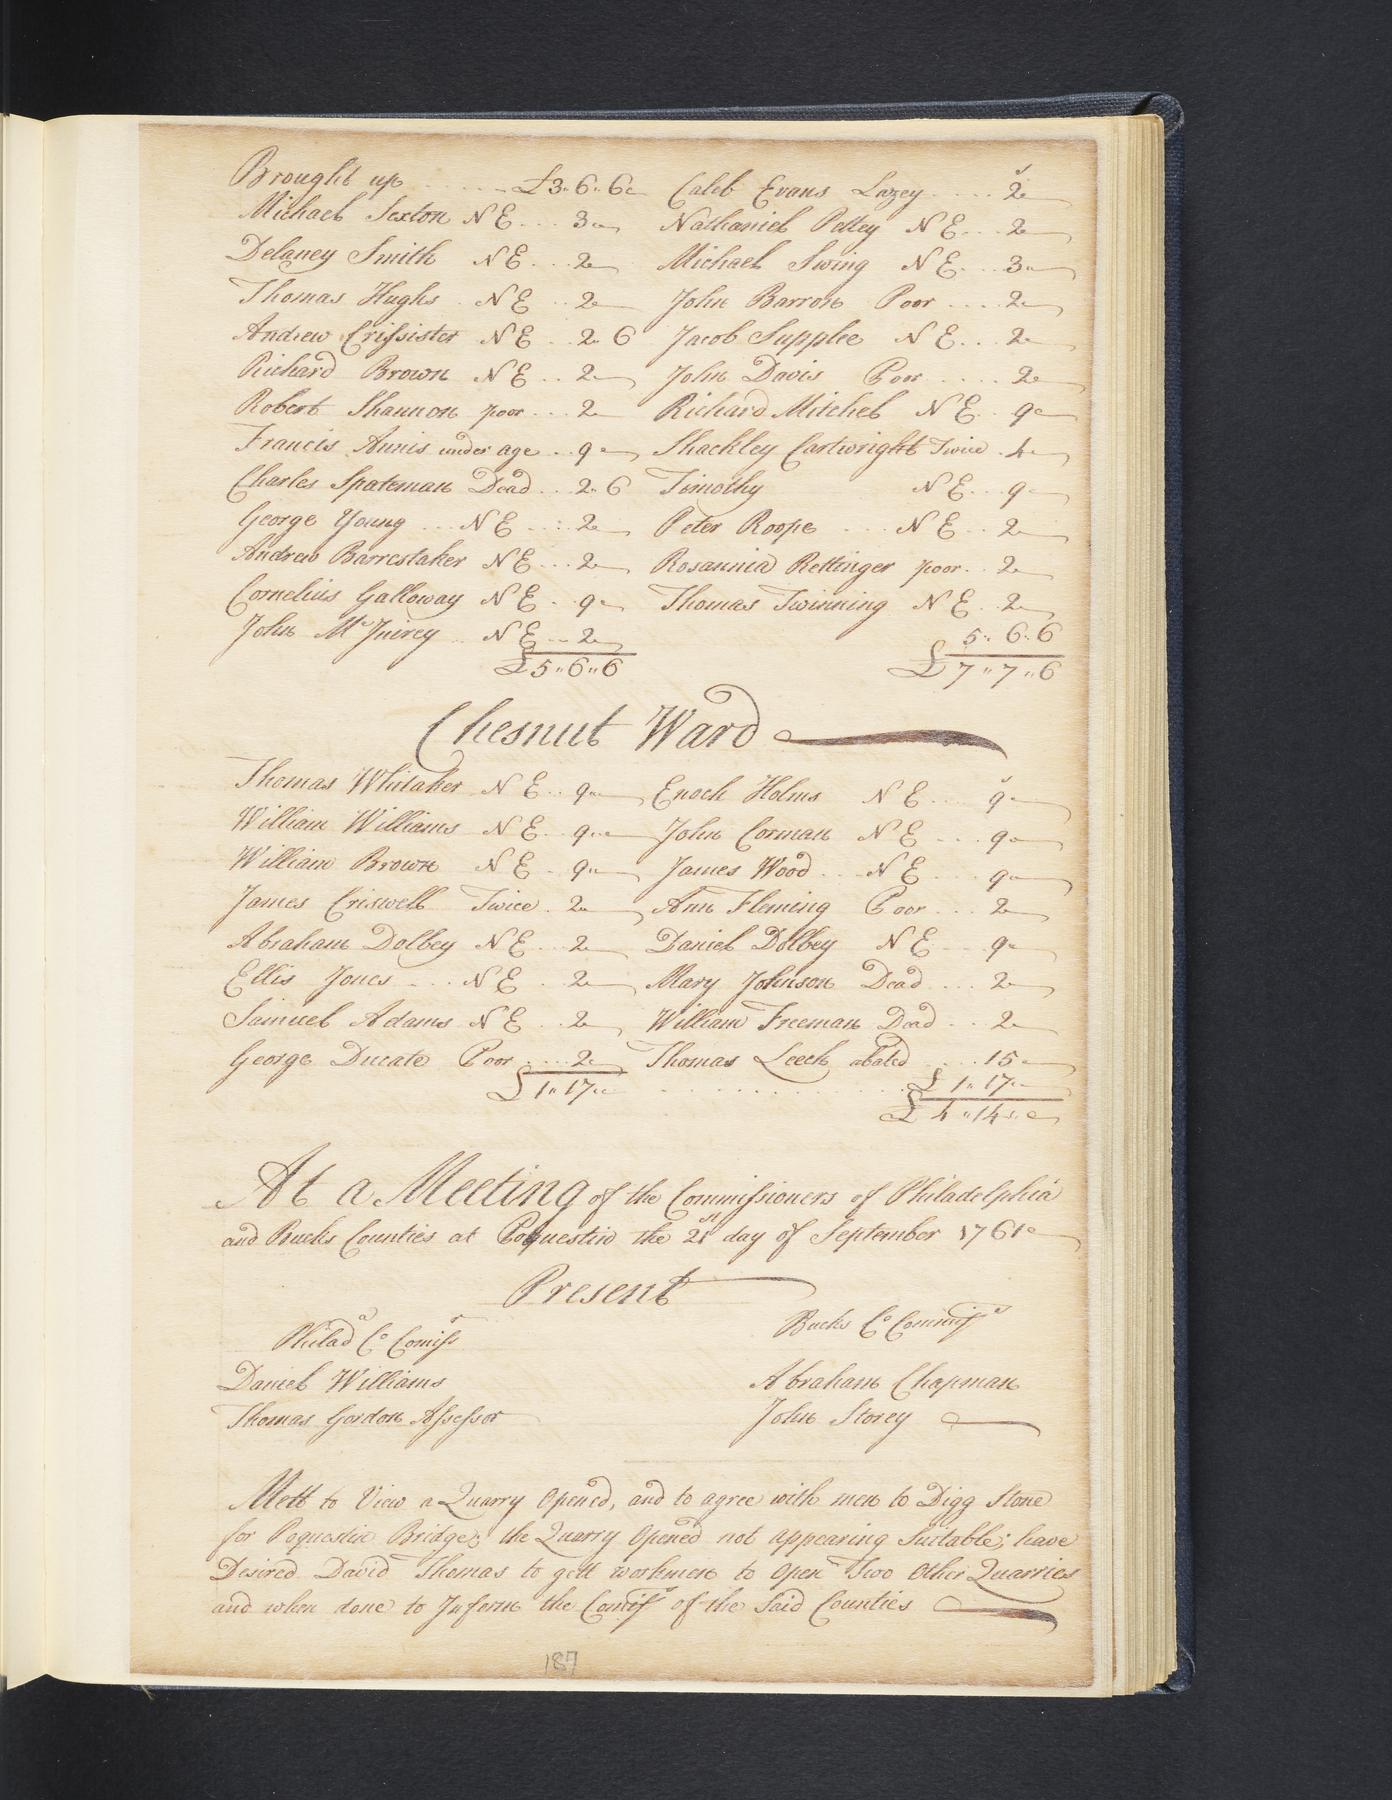 Brought up £3„6„6
Michael Sexton N E 3
Delaney Smith N E 2
Thomas Hughs N E 2
Andrew Crissister N E 2„6
Richard Brown N E 2
Robert Shannon poor 2
Francis Annis under age 9
Charles Spateman Dead 2„6
George Young N E 2
Andrew Barrestaker N E 2
Cornelius Galloway N E 9
John McJuirey N E 2
£5„6„6
Caleb Evans Lazey 2
Nathaniel Pettey N E 2
Michael Swing N E 3
John Barron Poor 2
Jacob Supplee N E 2
John Davis Poor 2
Richard Mitchel N E 9
Shackley Cartwright Twice 4
Timothy N E 9
Peter Roope N E 2
Rosannia Rettinger poor 2
Thomas Twinning N E 2
5„6„6
£7„7„6
Chesnut Ward
Thomas Whitaker N E 9
William Williams N E 9
William Brown N E 9
James Criswell Twice 2
Abraham Dolbey N E 2
Ellis Jones N E 2
Samuel Adams N E 2
George Ducate Poor 2
£1„17
Enoch Holms N E 9
John Corman N E 9
James Wood N E 9
Ann Fleming Poor 2
Daniel Dolbey N E 9
Mary Johnson Dead 2
William Freeman Dead 2
Thomas Leech abated 15
£1„17
£4„14
At a Meeting of the Commissioners of Philadelphia
and Bucks Counties at Poquestin the 21st day of September 1761
Present
Philad Co Comissr
Daniel Williams
Thomas Gordon Assessor
Bucks Co Commissrs
Abraham Chapman
John Storey
Mett to View a Quarry Opened, and to agree with men to Digg Stone
for Poquestin Bridge; the Quarry Opened not appearing Suitable; have
Desired David Thomas to gett workmen to open Two Other Quarries
and when done to Inform the Comissrs of the Said Counties
187